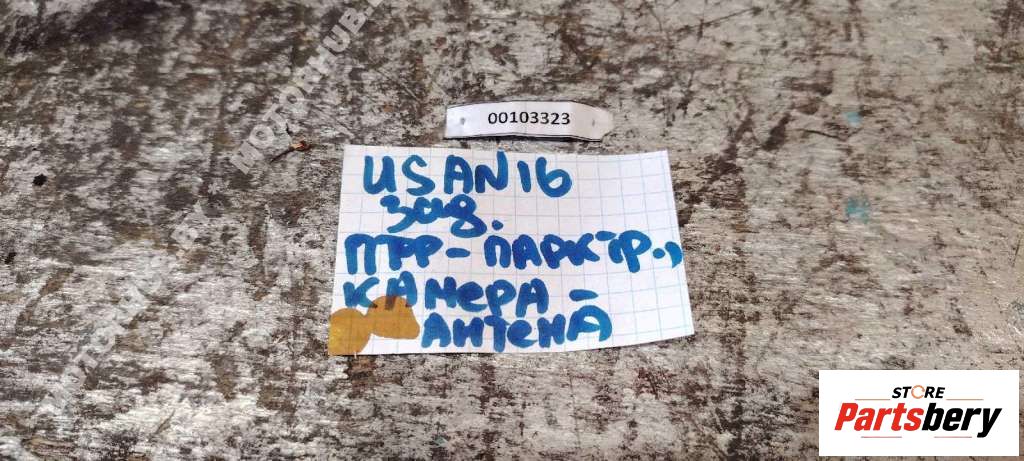 MOTORHUB.
00103323
USAN16
зав.
ПТФ-ПАРКТР.,
КАМЕРА -
АНТЕНА
STORE
Partsbery